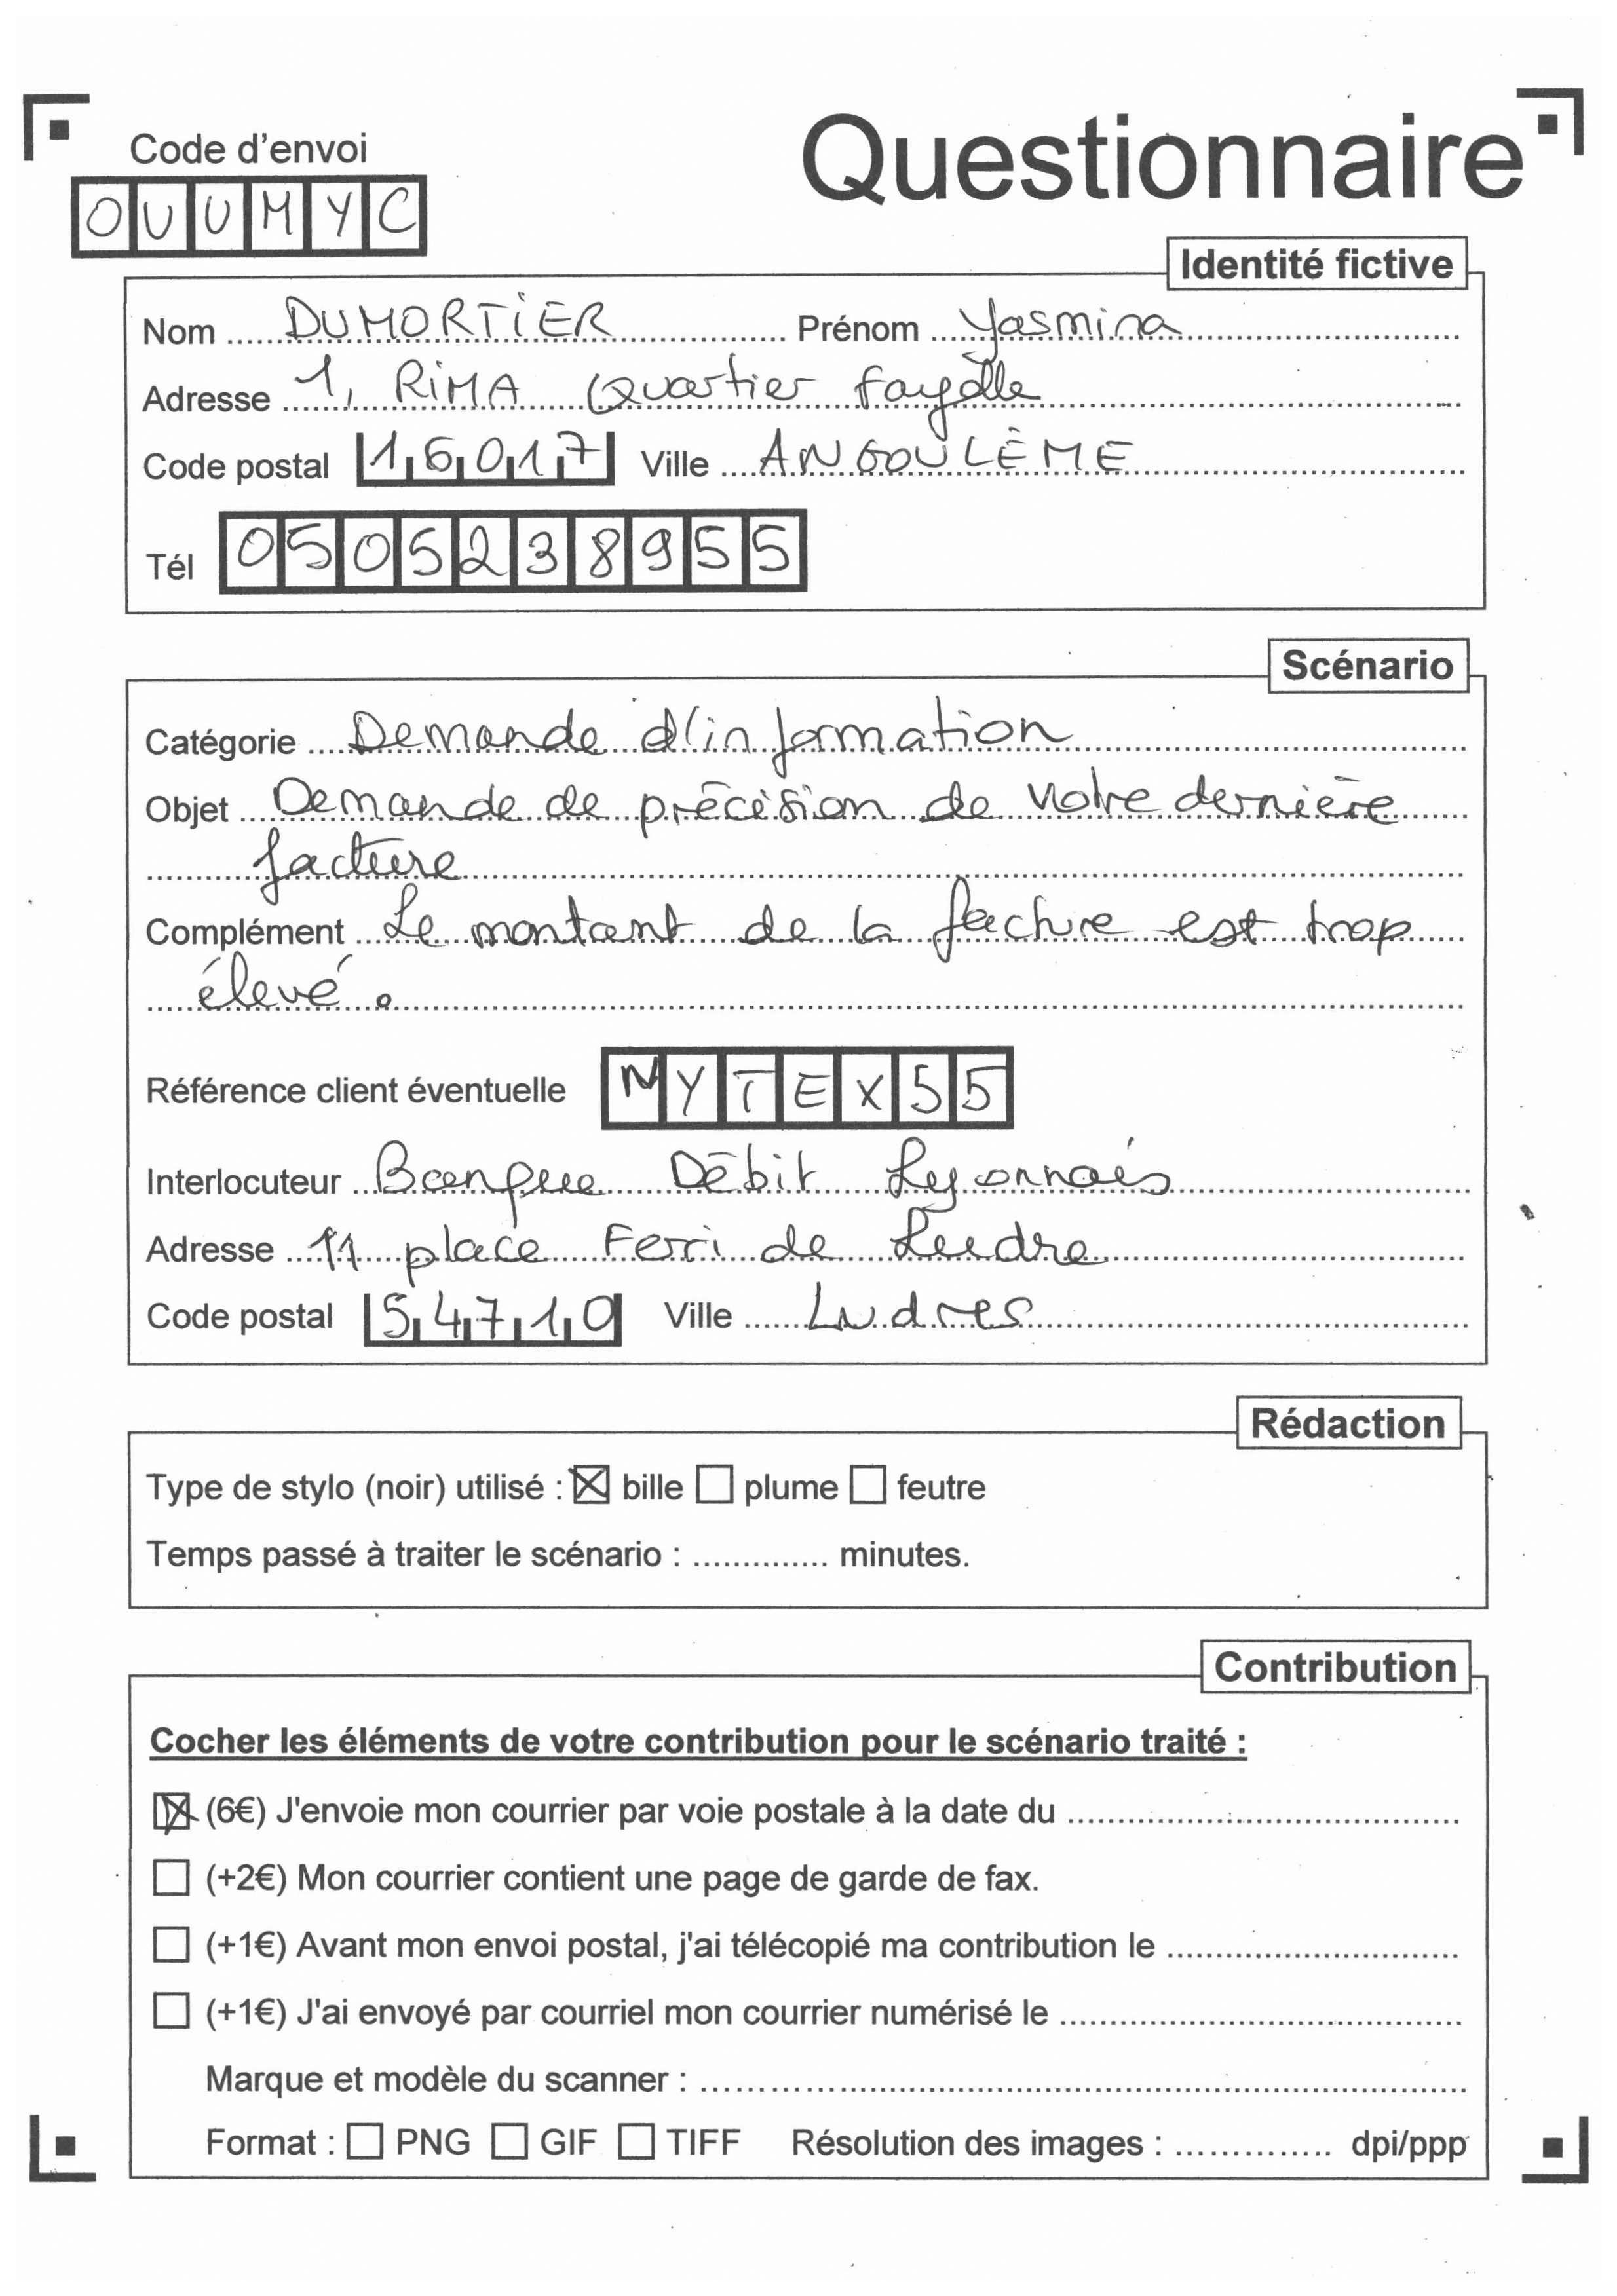 Code d'envoi
Questionnaire
OUUMYC
Identité fictive
Nom DUMORTIER Prénom Yasmina
Adresse 1, RIMA Quartier Fayolle
Code postal 16017 Ville ANGOULÊME
Tél 0505238955
Scénario
Catégorie Demande d'information
Objet Demande de précision de votre dernière
facture
Complément Le montant de la facture est trop
élevé.
Référence client éventuelle MYTEX55
Interlocuteur Banque Débit Lyonnais
Adresse 11 place Ferri de Ludre
Code postal 54710 Ville Ludres
Rédaction
Type de stylo (noir) utilisé : bille plume feutre
Temps passé à traiter le scénario : .............. minutes.
Contribution
Cocher les éléments de votre contribution pour le scénario traité :
(6€) J'envoie mon courrier par voie postale à la date du
(+2€) Mon courrier contient une page de garde de fax.
(+1€) Avant mon envoi postal, j'ai télécopié ma contribution le
(+1€) J'ai envoyé par courriel mon courrier numérisé le
Marque et modèle du scanner :
Format : PNG GIF TIFF Résolution des images : .............. dpi/ppp